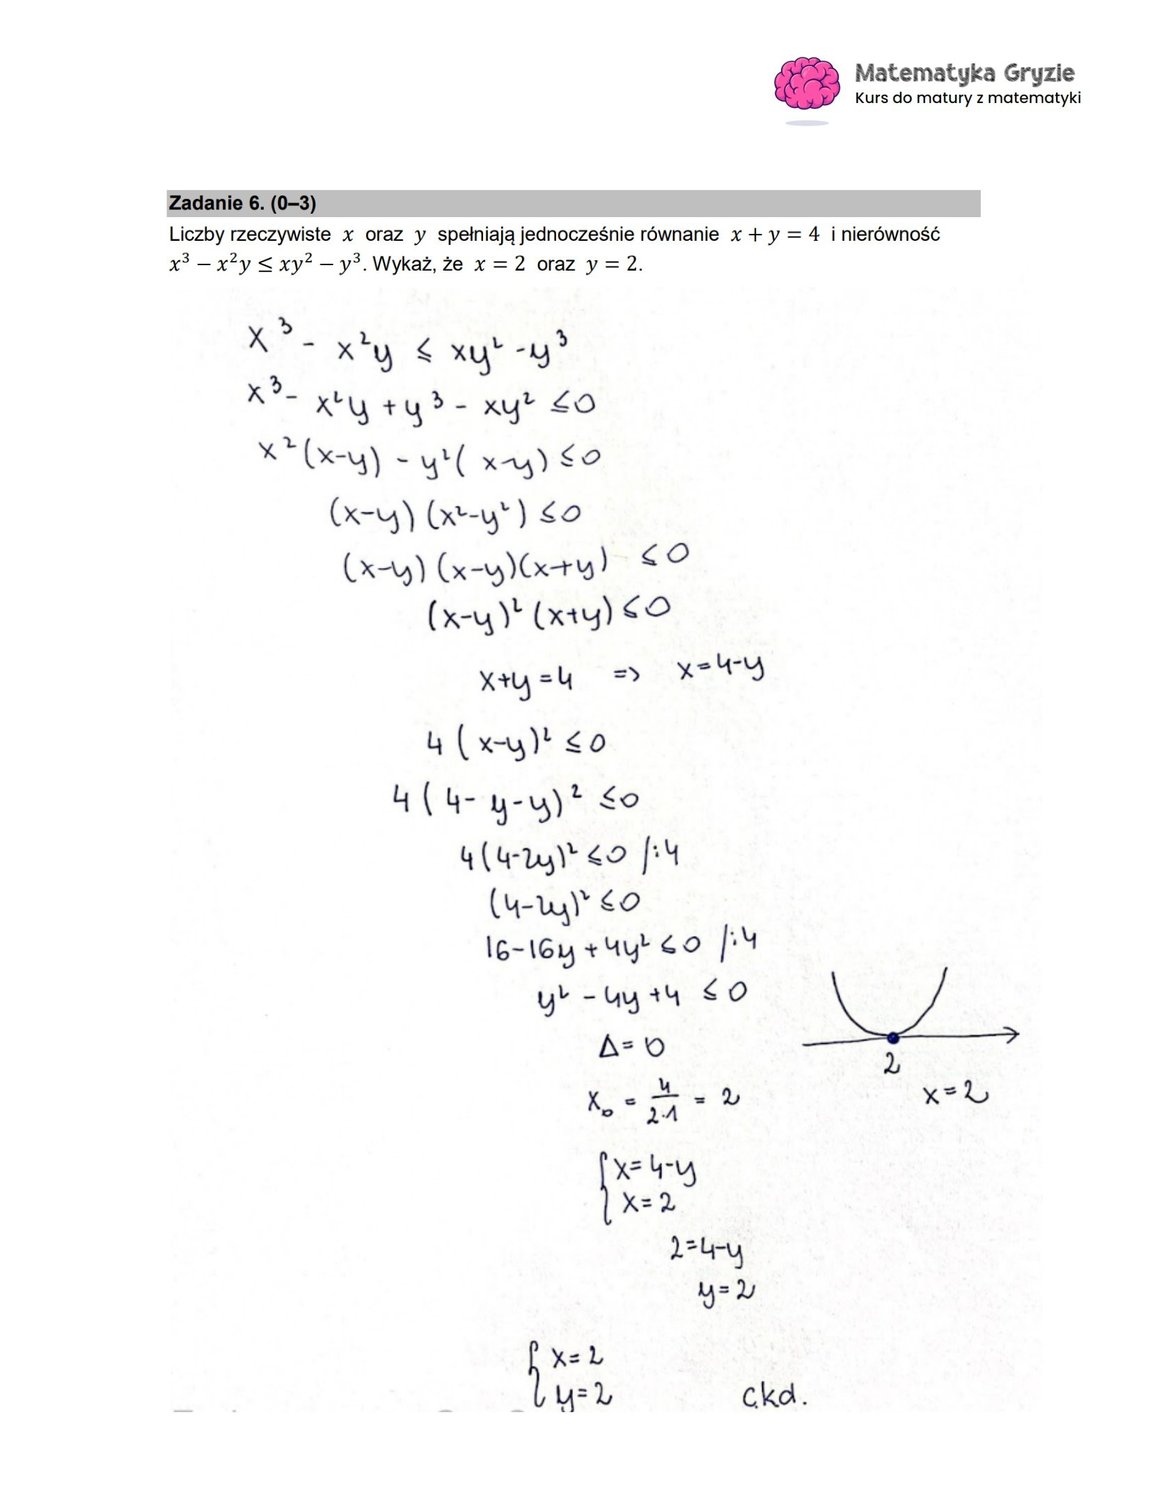 Matematyka Gryzie
Kurs do matury z matematyki
Zadanie 6. (0–3)
Liczby rzeczywiste x oraz y spełniają jednocześnie równanie x + y = 4 i nierówność
x³ − x²y ≤ xy² − y³. Wykaż, że x = 2 oraz y = 2.
x³ - x²y ≤ xy² - y³
x³ - x²y + y³ - xy² ≤ 0
x²(x-y) - y²(x-y) ≤ 0
(x-y)(x²-y²) ≤ 0
(x-y)(x-y)(x+y) ≤ 0
(x-y)²(x+y) ≤ 0
x+y=4 => x=4-y
4(x-y)² ≤ 0
4(4-y-y)² ≤ 0
4(4-2y)² ≤ 0 /:4
(4-2y)² ≤ 0
16-16y+4y² ≤ 0 /:4
y² - 4y + 4 ≤ 0
Δ = 0
2
x₀ = 4/2·1 = 2
x=2
{ x=4-y
x=2
2=4-y
y=2
{ x=2
y=2
c.k.d.